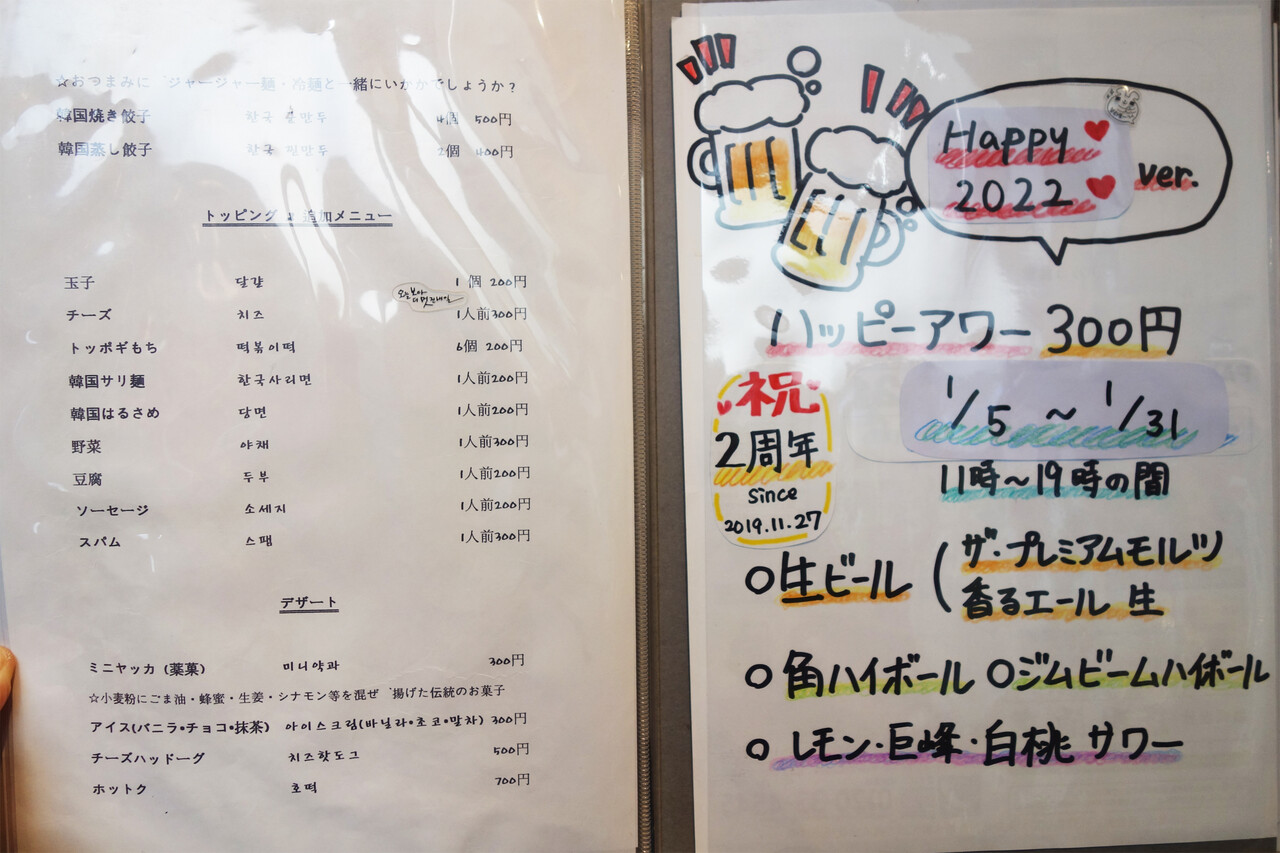 ☆おつまみに ジャージャー麺・冷麺と一緒にいかがでしょうか?
韓国焼き餃子 한국 군만두 4個 500円
韓国蒸し餃子 한국 찐만두 2個 400円
トッピング & 追加メニュー
玉子 달걀 1個 200円
チーズ 치즈 1人前300円
トッポギもち 떡볶이떡 6個 200円
韓国サリ麺 한국사리면 1人前200円
韓国はるさめ 당면 1人前200円
野菜 야채 1人前300円
豆腐 두부 1人前200円
ソーセージ 소세지 1人前200円
スパム 스팸 1人前300円
デザート
ミニヤッカ (薬菓) 미니약과 300円
☆小麦粉にごま油・蜂蜜・生姜・シナモン等を混ぜ゛揚げた伝統のお菓子
アイス(バニラ•チョコ•抹茶) 아이스크림(바닐라•초코•말차) 300円
チーズハッドーグ 치즈핫도그 500円
ホットク 호떡 700円
Happy
2022
ver.
ハッピーアワー 300円
祝
2周年
since
2019.11.27
1/5 ~ 1/31
11時~19時の間
○生ビール (ザ・プレミアムモルツ
香るエール 生
○角ハイボール ○ジムビームハイボール
○レモン・巨峰・白桃 サワー